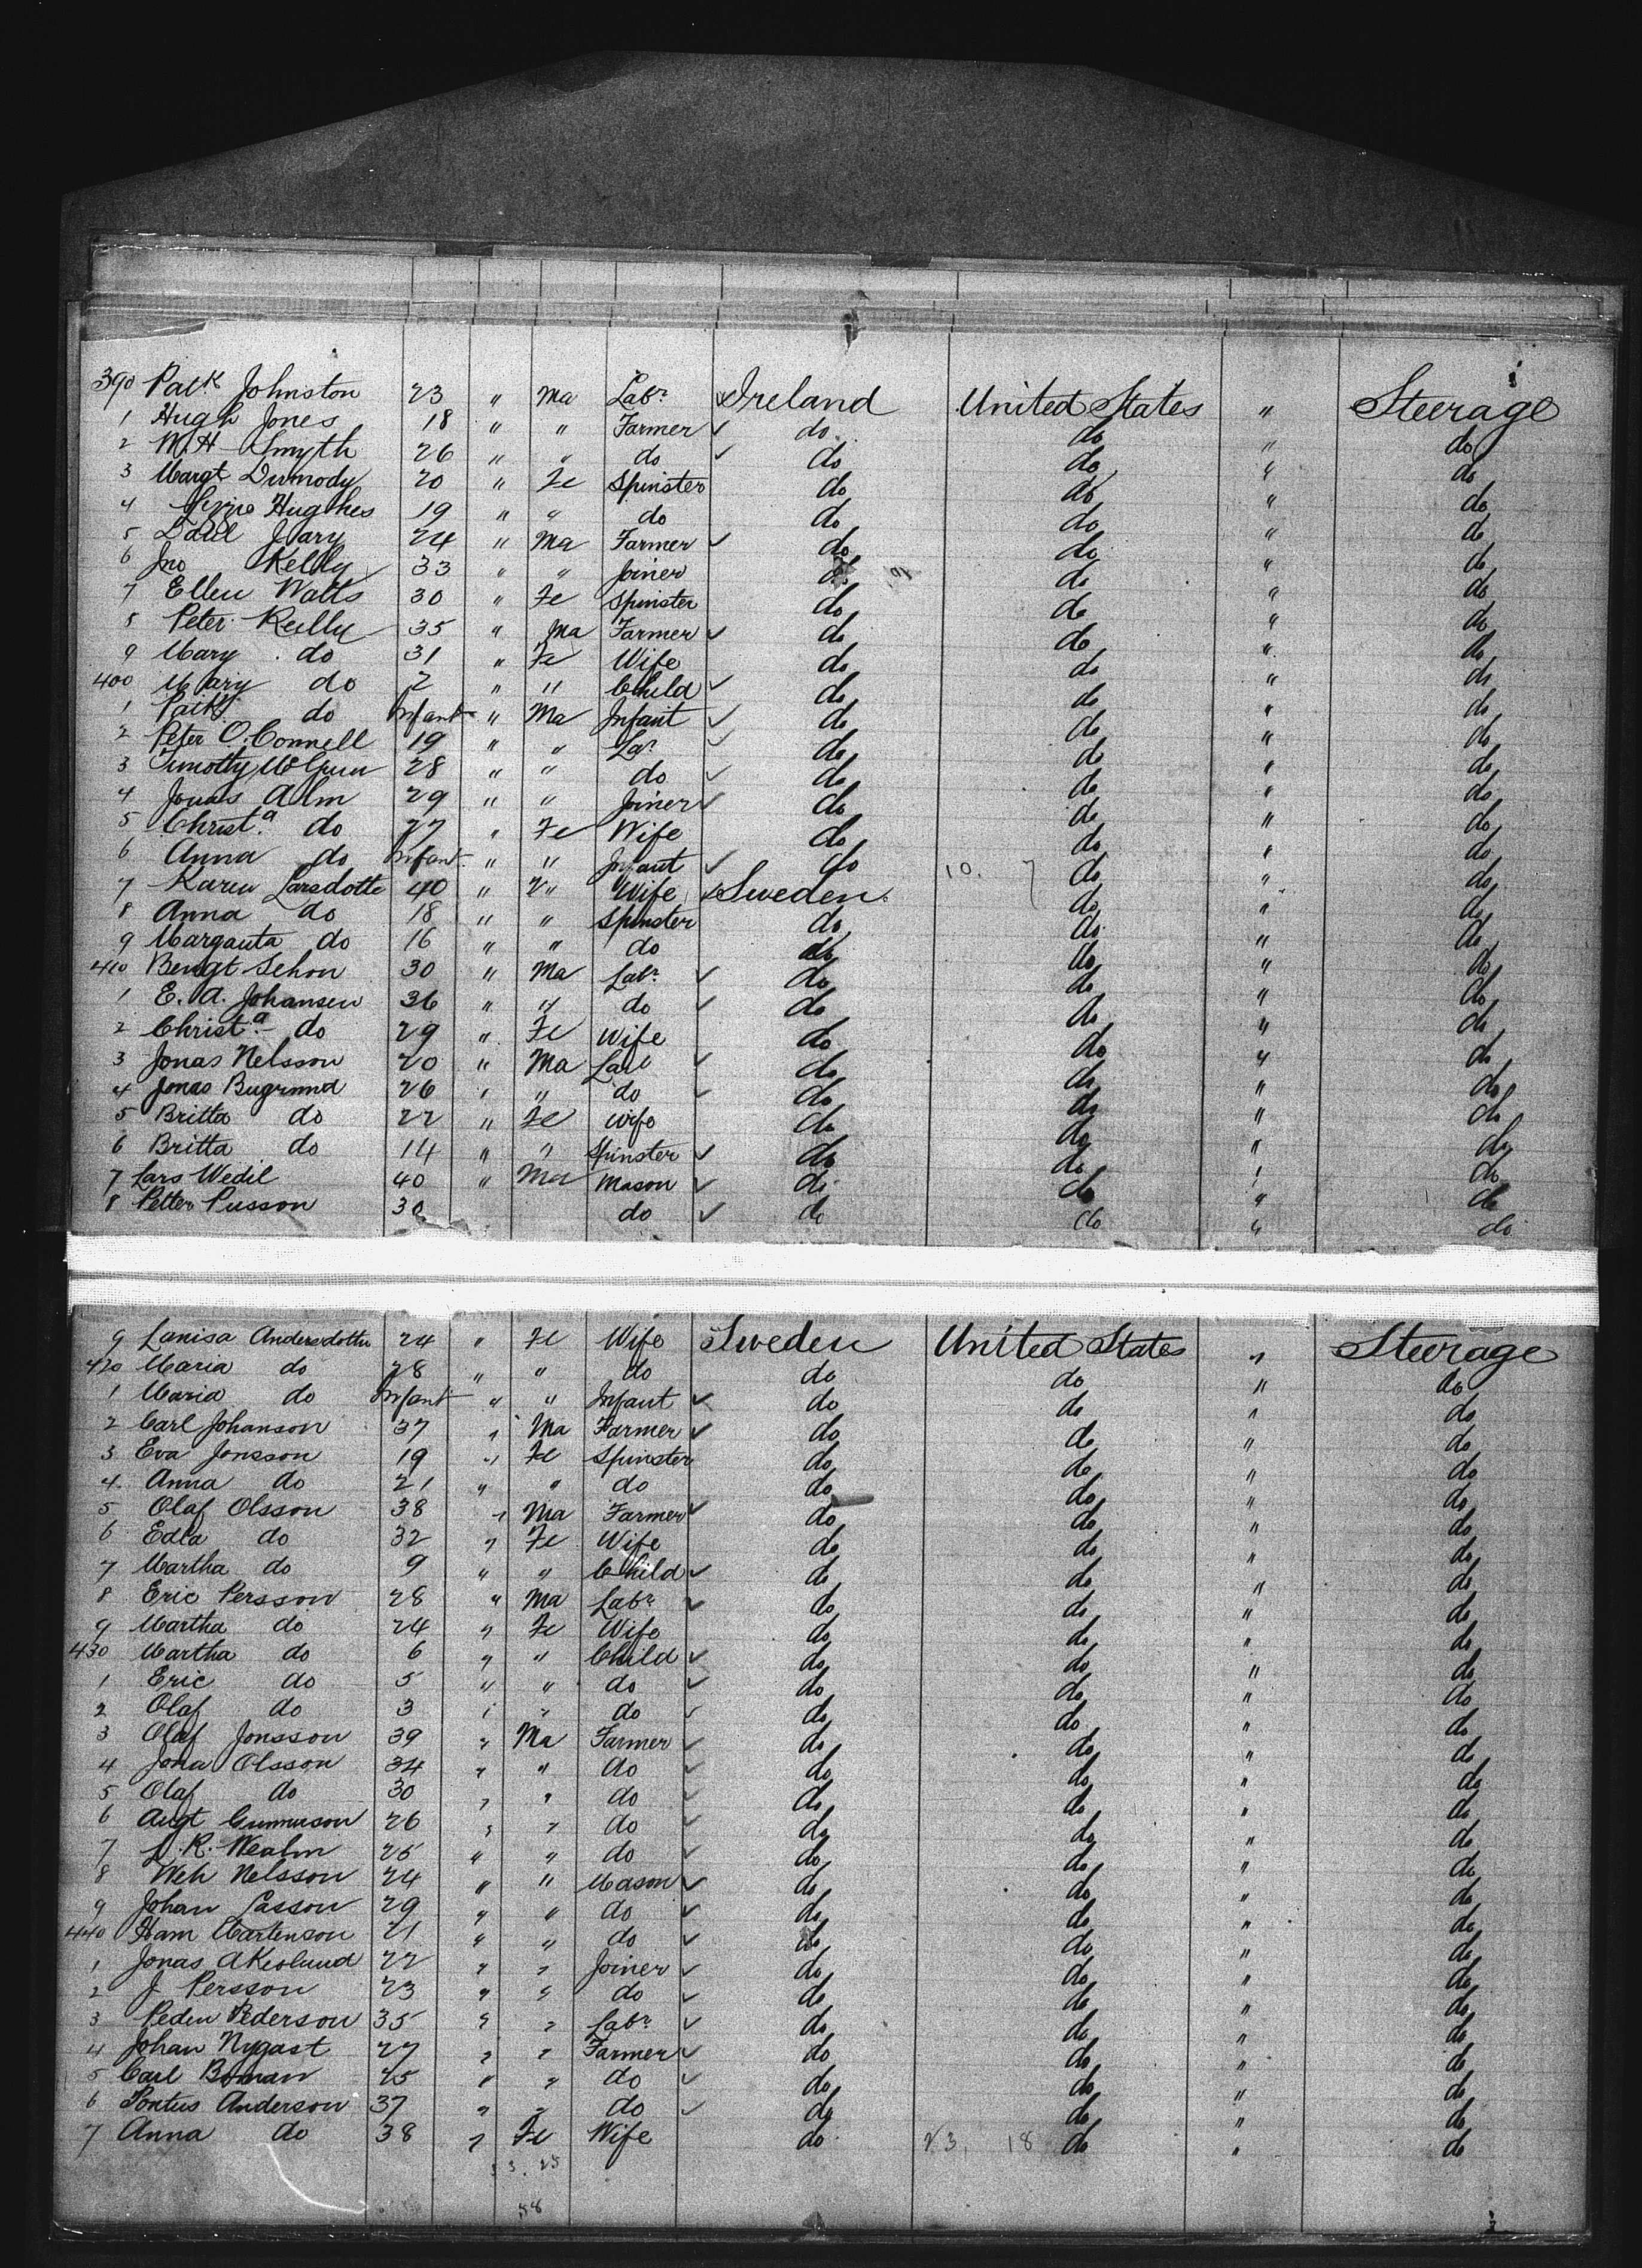 390 Patk Johnston 23 " Ma Labr Ireland United States " Steerage
1 Hugh Jones 18 " " Farmer do do " do
2 W. H Smyth 26 " " do do do " do
3 Margt Dermody 20 " Fe Spinster do do " do
4 Lizzie Hughes 19 " " do do do " do
5 24 " Ma Farmer do do " do
6 Jno Kelly 33 " " Joiner do do " do
7 Ellen Watts 30 " Fe Spinster do do " do
8 Peter Reilly 35 " Ma Farmer do do " do
9 Mary do 31 " Fe Wife do do " do
400 Mary do 2 " " Child do do " do
1 Patk do Infant " Ma Infant do do " do
2 Peter O'Connell 19 " " Lar do do " do
3 Timothy 28 " " do do do " do
4 Jonas Alm 29 " " Joiner do do " do
5 Christa do 27 " Fe Wife do do " do
6 Anna do Infant " " Infant do 10. 7 do " do
7 Karen Larsdotte 40 " " Wife Sweden do " do
8 Anna do 18 " " Spinster do do " do
9 Margauta do 16 " " do do do " do
410 Bengt Sehon 30 " Ma Labr do do " do
1 E. A. Johansen 36 " " do do do " do
2 Christa do 29 " Fe Wife do do " do
3 Jonas Nelsson 20 " Ma do do " do
4 Jonas 26 " " do do do " do
5 Britta do 22 " Fe Wife do do " do
6 Britta do 14 " " Spinster do do " do
7 Lars Wedil 40 " Ma Mason do do " do
8 Petter Pusson 30 do do do " do
9 Lanisa Andersdotter 24 " Fe Wife Sweden United States " Steerage
420 Maria do 28 " " do do do " do
1 Maria do Infant " " Infant do do " do
2 Carl Johanson 37 " Ma Farmer do do " do
3 Eva Jonsson 19 " Fe Spinster do do " do
4 Anna do 21 " " do do do " do
5 Olaf Olsson 38 " Ma Farmer do do " do
6 Edla do 32 " Fe Wife do do " do
7 Martha do 9 " " Child do do " do
8 Eric Persson 28 " Ma Labr do do " do
9 Martha do 24 " Fe Wife do do " do
430 Martha do 6 " " Child do do " do
1 Eric do 5 " " do do do " do
2 Olaf do 3 " " do do do " do
3 Olaf Jonsson 39 " Ma Farmer do do " do
4 Jona Olsson 34 " " do do do " do
5 Olaf do 30 " " do do do " do
6 Augt Gunnuson 26 " " do do do " do
7 R. Wealm 25 " " do do do " do
8 Neh Nelsson 24 " " Mason do do " do
9 Johan Lasson 29 " " do do do " do
440 Ham Martenson 21 " " do do do " do
1 Jonas Akeslund 22 " " Joiner do do " do
2 J Persson 23 " " do do do " do
3 Peden Pederson 35 " " Labr do do " do
4 Johan Nygast 27 " " Farmer do do " do
5 Carl Boman 25 " " do do do " do
6 Pontus Anderson 37 " " do do do " do
7 Anna do 38 " Fe Wife do 23. 18 do " do